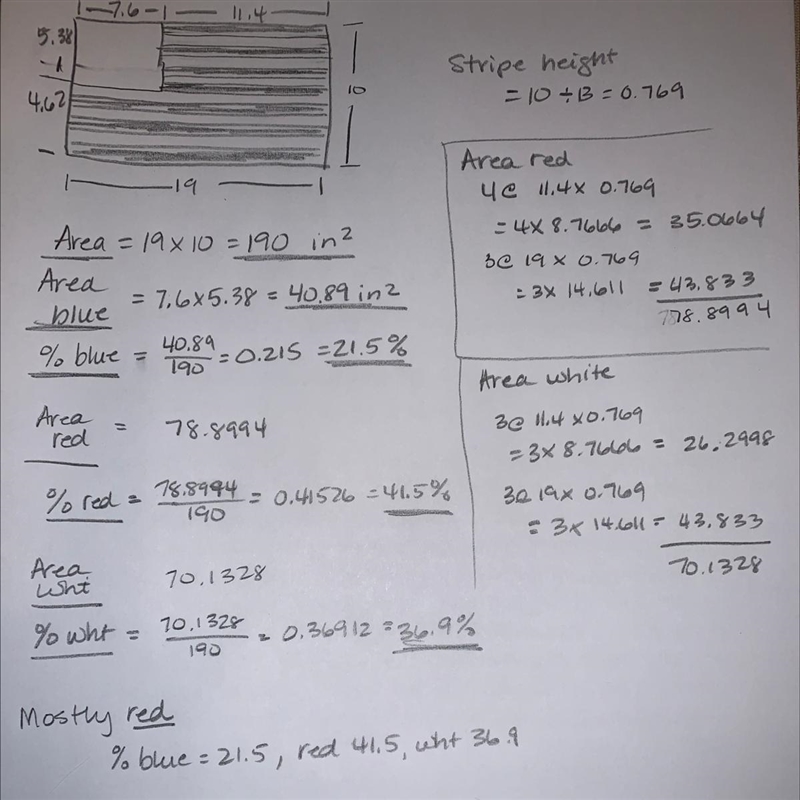 7.6 11.4
5.38
4.62
10
19
Stripe height
= 10 ÷ 13 = 0.769
Area = 19 x 10 = 190 in²
Area blue = 7.6 x 5.38 = 40.89 in²
% blue = 40.89/190 = 0.215 = 21.5%
Area red = 78.8994
% red = 78.8994/190 = 0.41526 = 41.5%
Area Wht 70.1328
% wht = 70.1328/190 = 0.36912 = 36.9%
Area red
4@ 11.4 x 0.769
= 4 x 8.7666 = 35.0664
3@ 19 x 0.769
= 3 x 14.611 = 43.833
78.8994
Area white
3@ 11.4 x 0.769
= 3 x 8.7666 = 26.2998
3@ 19 x 0.769
= 3 x 14.611 = 43.833
70.1328
Mostly red
% blue = 21.5, red 41.5, wht 36.9